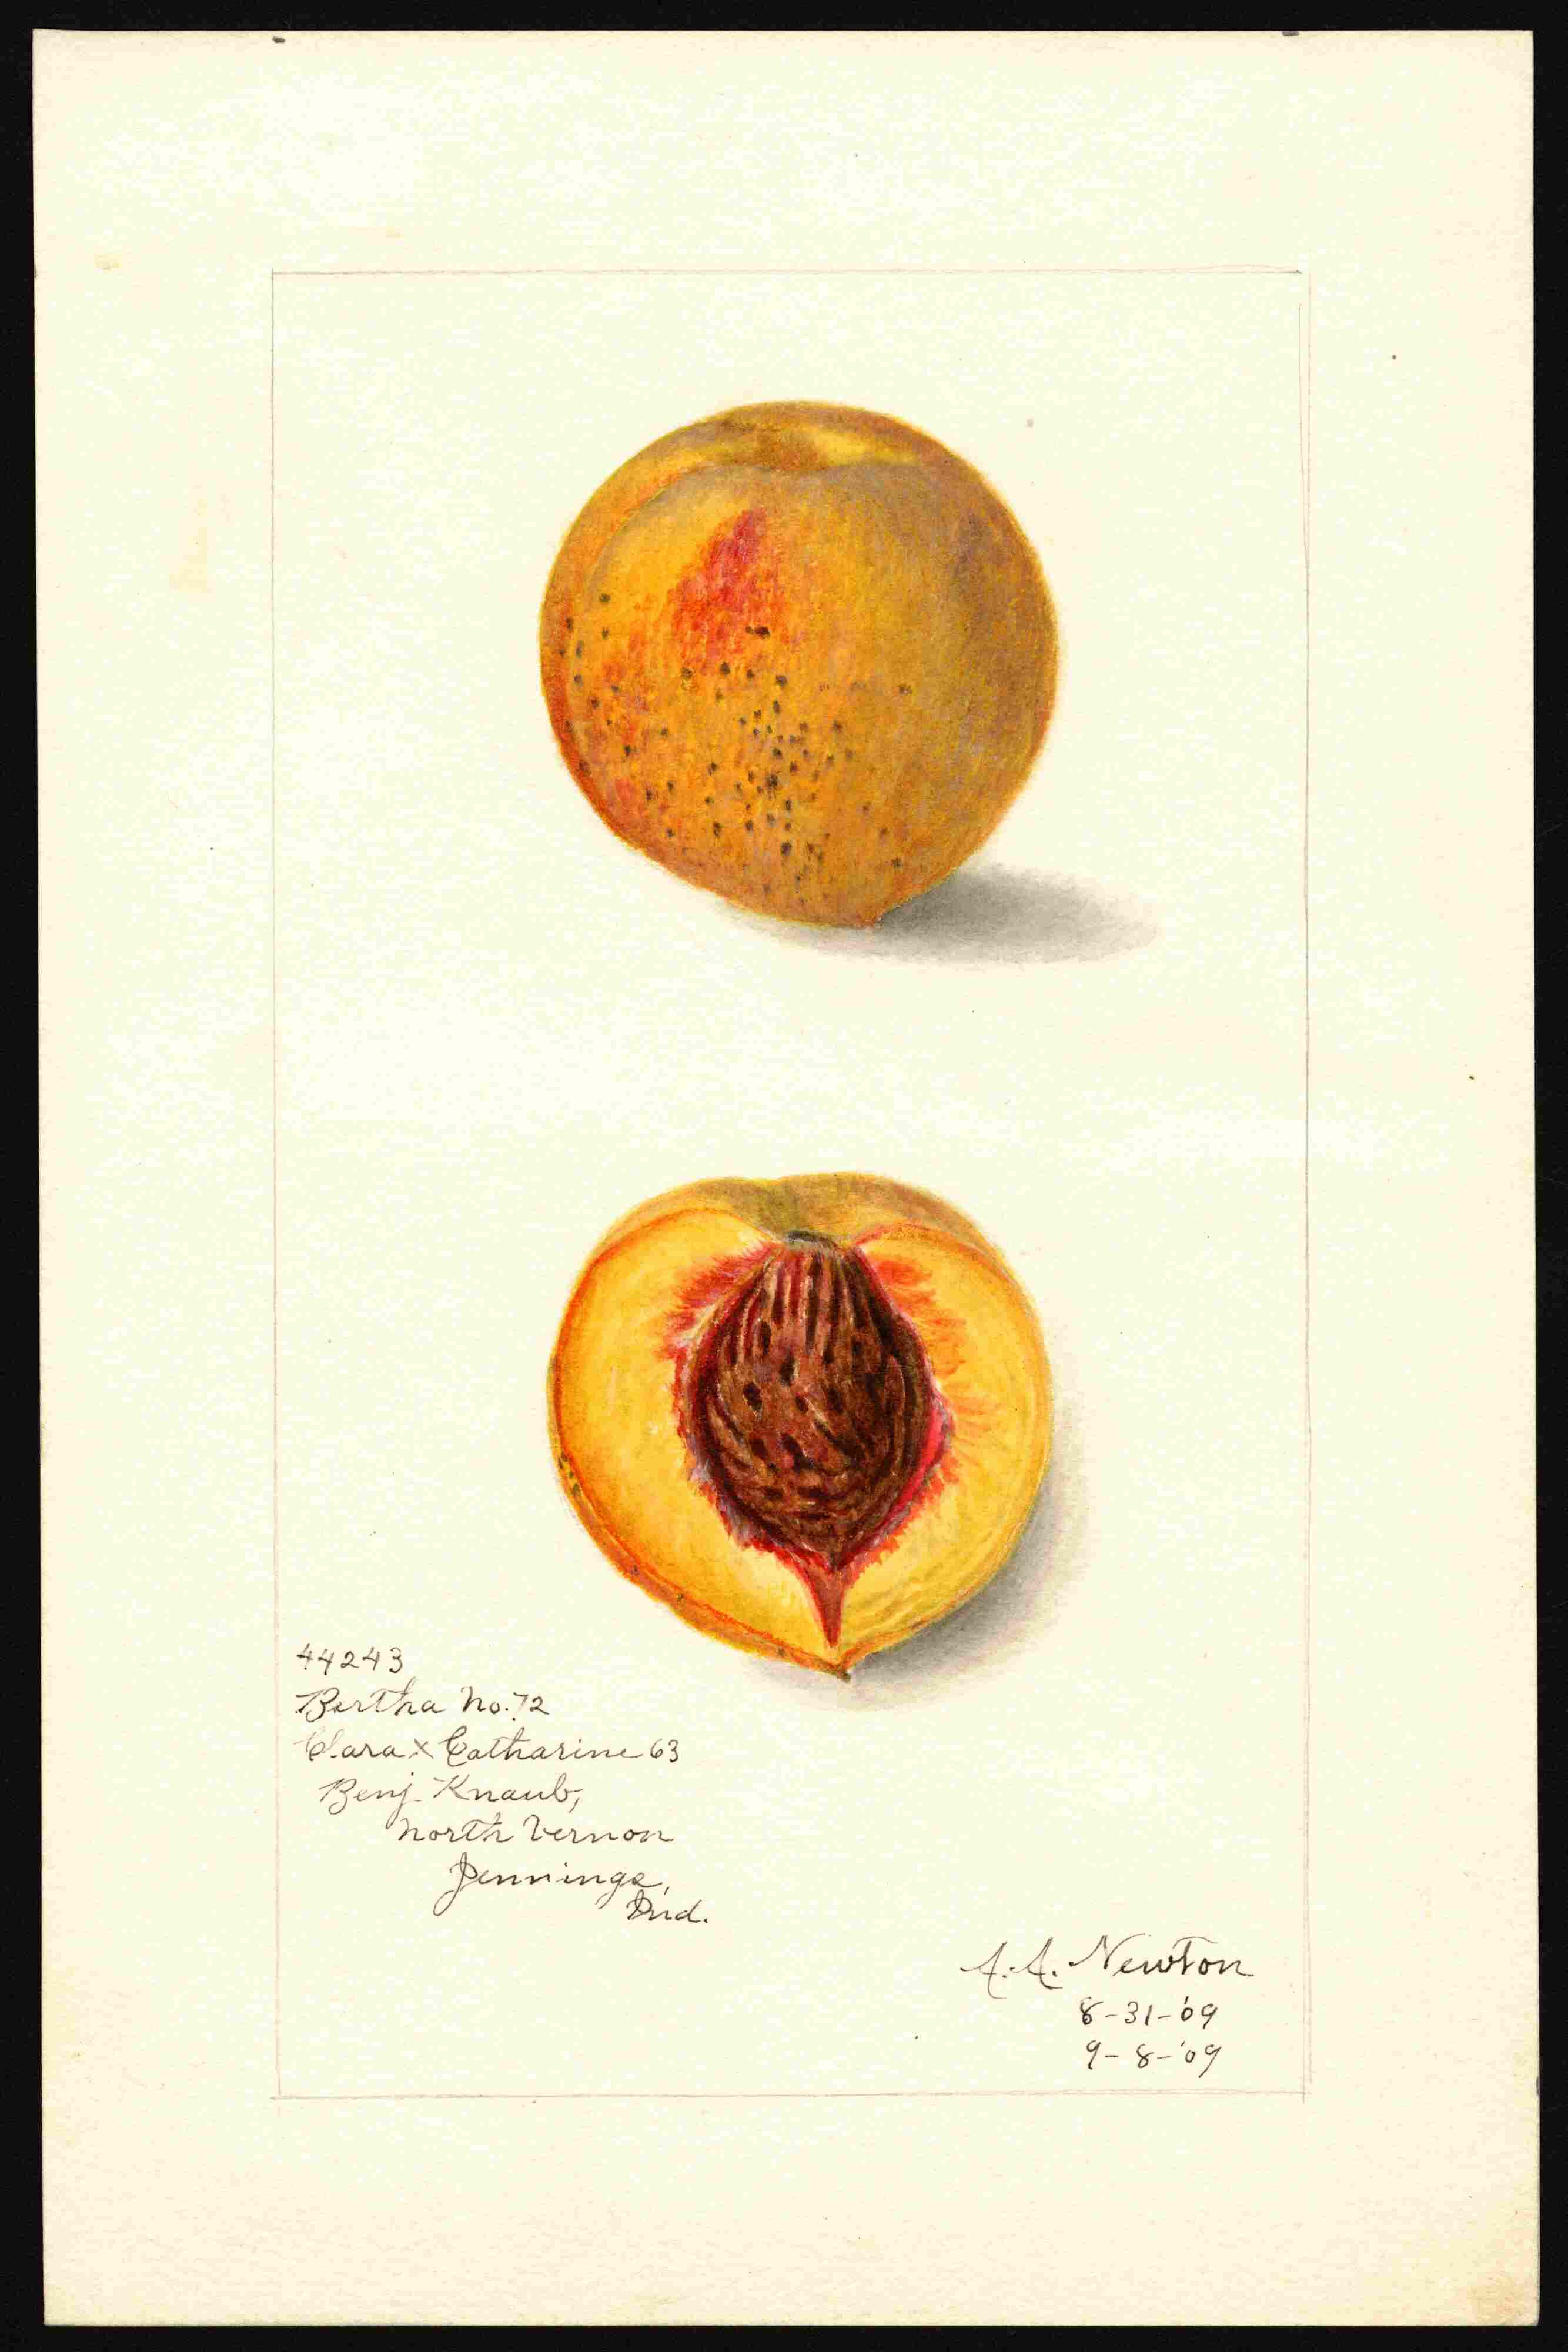 44243
Bertha No. 72
Clara x Catharine 63
Benj. Knaub,
North Vernon
Jennings,
Ind.
A.A. Newton
8-31-'09
9-8-'09